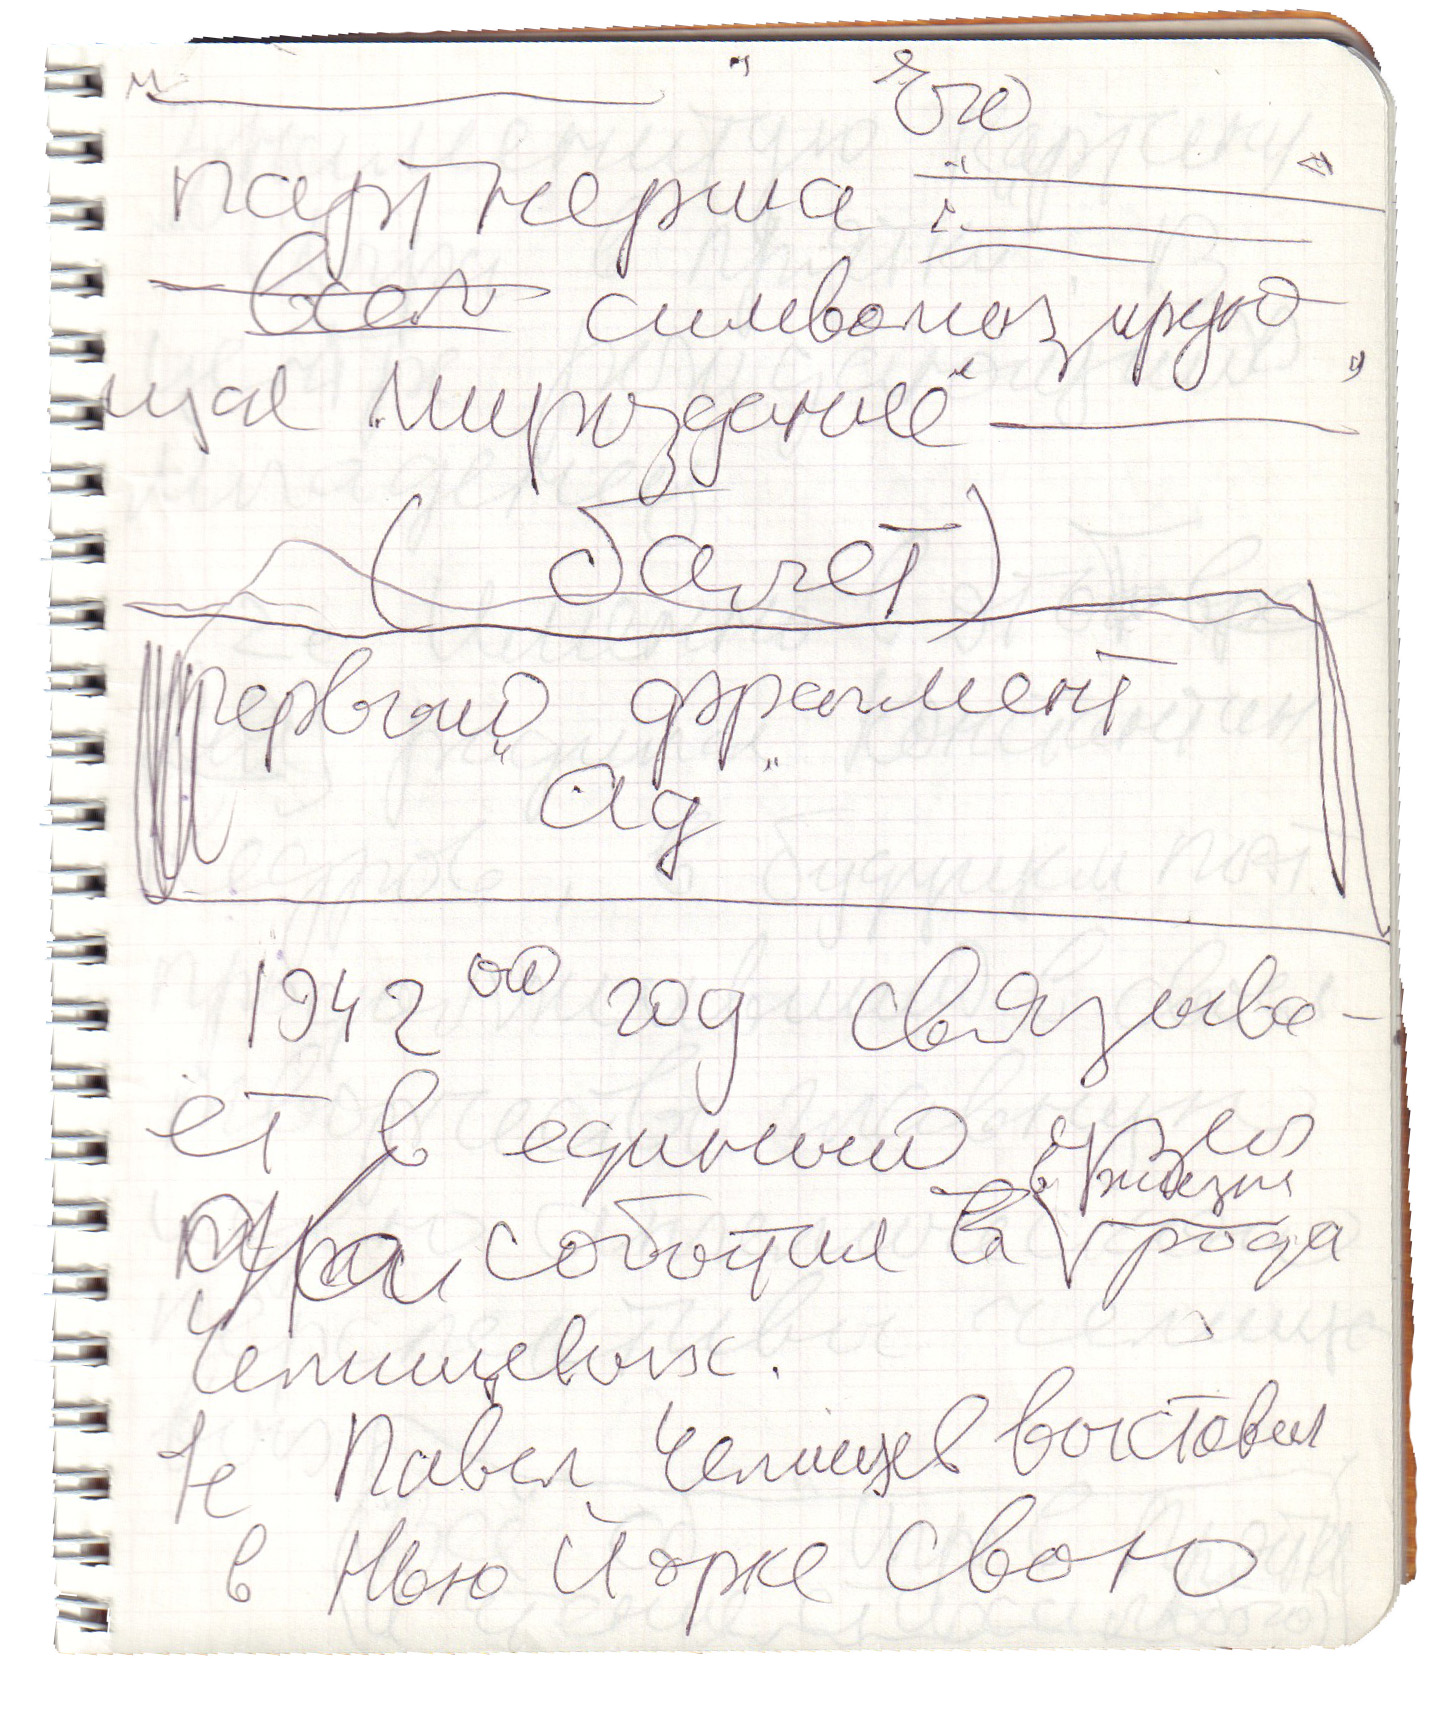 " ———— " Его
партнерша " ———— "
всем символизирую
щая мироздание " ———— "
(балет)
первый фрагмент
"Ад"
1942 ой год связыва-
ет в единый узел
в жизни
два события в рода
Челищевых.
Павел Челищев выставил
в Нью Йорке свою